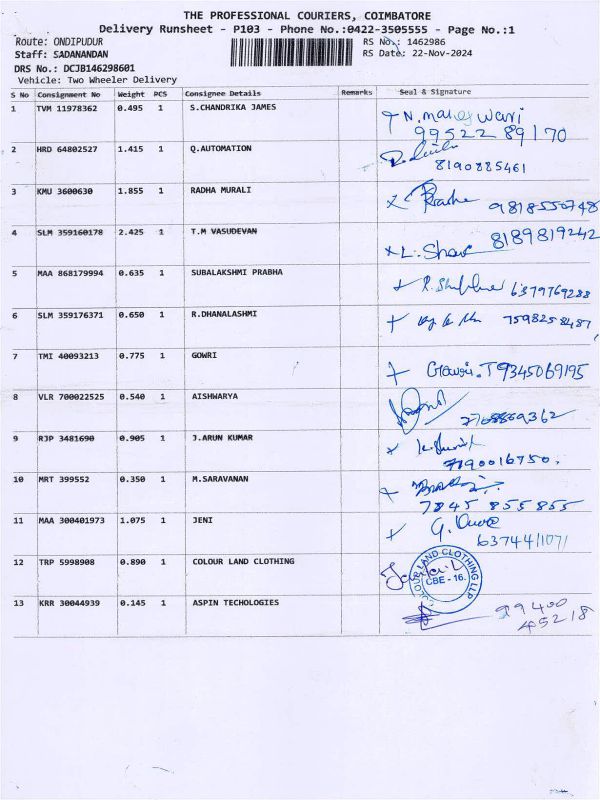 THE PROFESSIONAL COURIERS, COIMBATORE
Delivery Runsheet - P103 - Phone No.:0422-3505555 - Page No.:1
Route: ONDIPUDUR RS No.: 1462986
Staff: SADANANDAN RS Date: 22-Nov-2024
DRS No.: DCJB146298601
Vehicle: Two Wheeler Delivery
S No Consignment No Weight PCS Consignee Details Remarks Seal & Signature
1 TVM 11978362 0.495 1 S.CHANDRIKA JAMES N. maheswari
99522 89170
2 HRD 64802527 1.415 1 Q.AUTOMATION
8190885461
3 KMU 3600630 1.855 1 RADHA MURALI Radha 9818550748
4 SLM 359160178 2.425 1 T.M VASUDEVAN 8189819242
5 MAA 868179994 0.635 1 SUBALAKSHMI PRABHA 6379769288
6 SLM 359176371 0.650 1 R.DHANALASHMI 7598258487
7 TMI 40093213 0.775 1 GOWRI Gowri.T 9345069195
8 VLR 700022525 0.540 1 AISHWARYA
9 RJP 3481690 0.905 1 J.ARUN KUMAR
7190016750.
10 MRT 399552 0.350 1 M.SARAVANAN
7845 855 855
11 MAA 300401973 1.075 1 JENI
6374411071
12 TRP 5998908 0.890 1 COLOUR LAND CLOTHING
COLOUR LAND CLOTHING LLP
CBE - 16.
13 KRR 30044939 0.145 1 ASPIN TECHOLOGIES 99400
45218